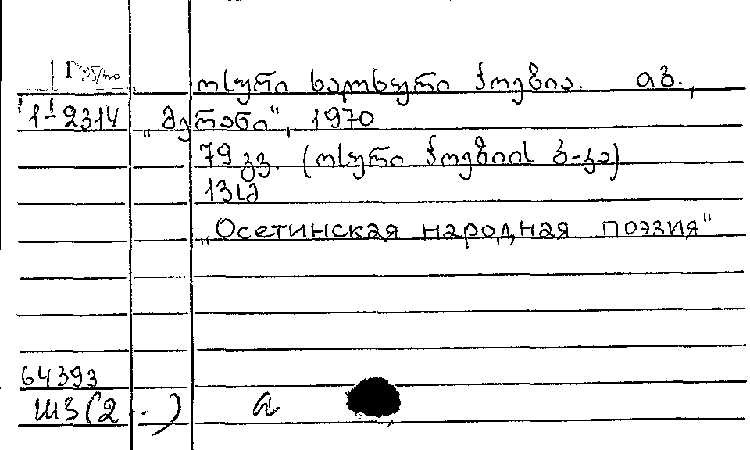 ოსური ხალხური პოეზია. თბ.,
1-2314 „მერანი", 1970
79 გვ. (ოსური პოეზიის ბ-კა)
"Осетинская народная поэзия"
64393
Ш3(2 )